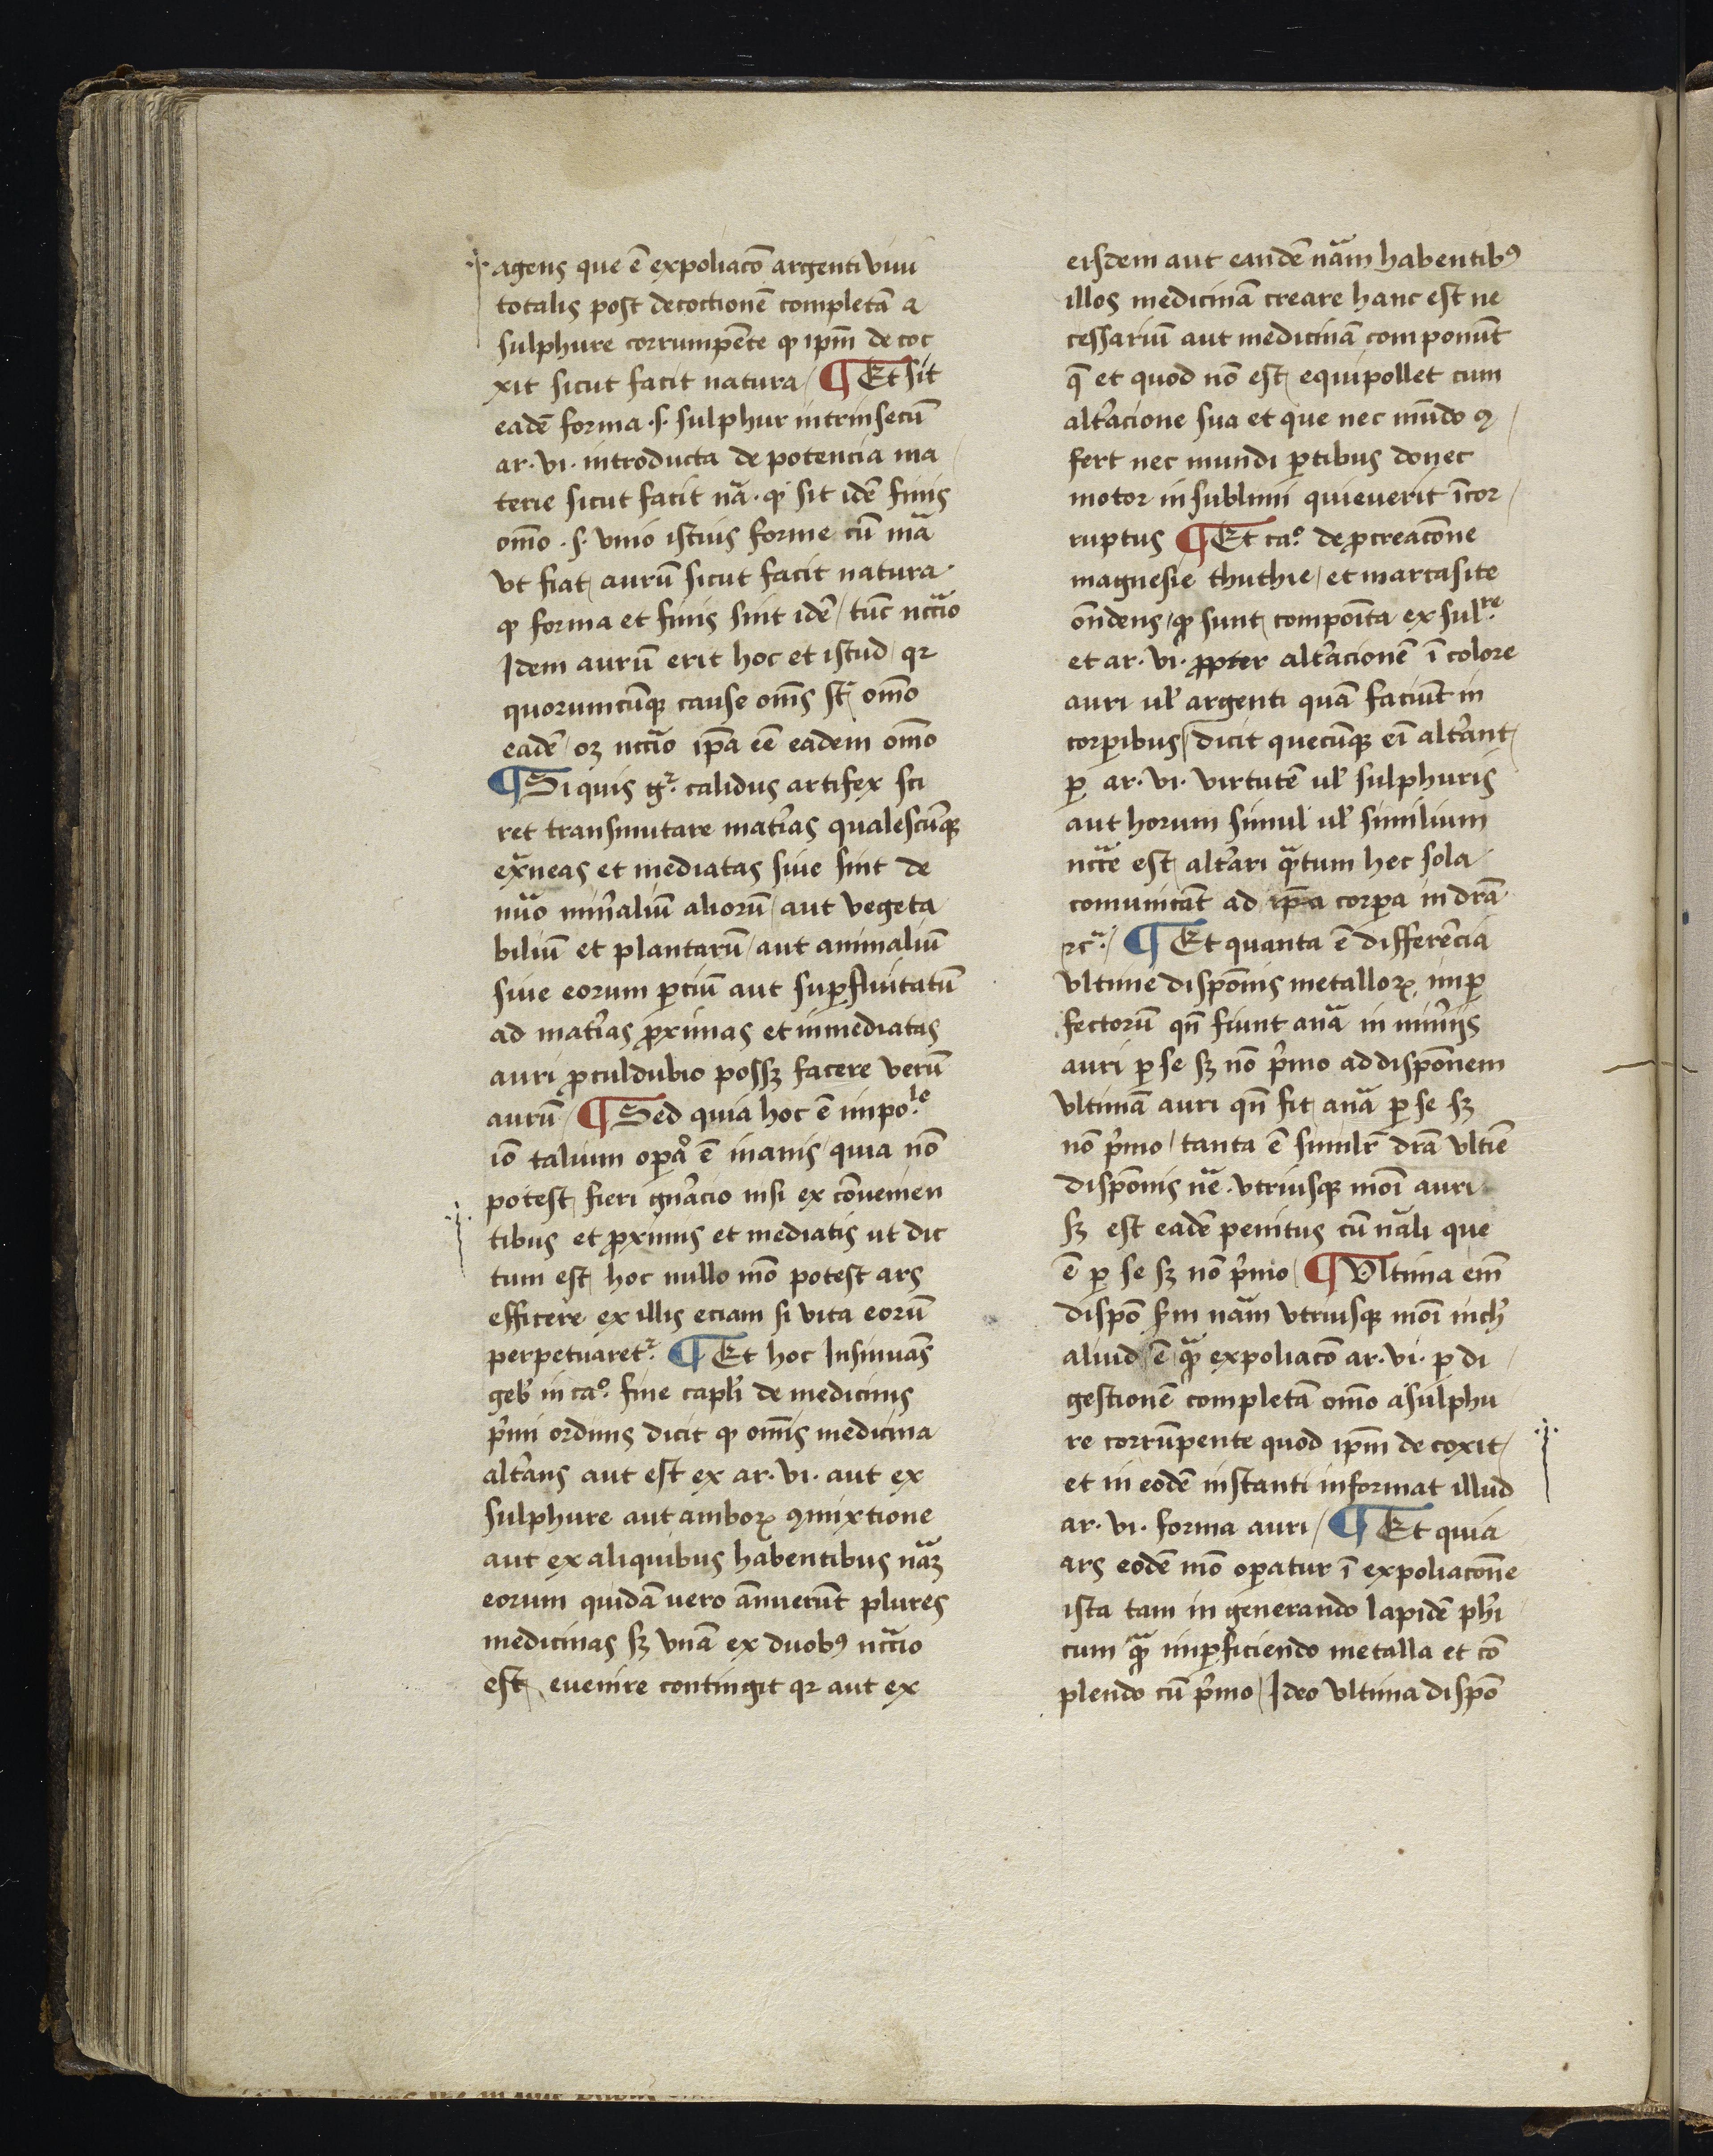 agens que ē expoliacō argenti viui
totalis post decoctionē completā a
sulphure corrumpēte ꝙ ip̄m decoc
xit sicut facit natura / ¶ Et sit
eadē forma .s. sulphur intrinsecū
ar. vi. introducta de potencia ma
terie sicut facit nā. ꝙ sit idē finis
om̄o .s. vnio istius forme cū mā
vt fiat aurū sicut facit natura.
ꝙ forma et finis sint idē / tūc nccīo
Idem aurū erit hoc et istud / qꝛ
quorumcūqꝫ cause om̄s st̄ om̄o
eadē / oꝫ nccīo ip̄a eē eadem om̄o
¶ Si quis gͬ. calidus artifex sci
ret transmutare mat̓ias qualescūqꝫ
ex̄neas et mediatas siue sint de
nūo min̓aliū aliorū / aut vegeta
biliū et plantarū / aut animaliū
siue eorum ꝑciū aut suꝑfluitatū
ad mat̓ias ꝓximas et inmediatas
auri ꝓculdubio possꝫ facere verū
aurū / ¶ Sed quia hoc ē impo.le
iō talium oꝑaͦ ē inanis / quia nō
potest fieri gn̓acio nisi ex cōuenien
tibus et ꝓximis et mediatis ut dic
tum est hoc nullo mō potest ars
efficere ex illis eciam si vita eorū
perpetuaretͬ. ¶ Et hoc Insinuās
geb̓ in caº. fine capl̓i de medicinis
p̓mi ordinis dicit ꝙ om̄is medicina
alt̓ans aut est ex ar. vi. aut ex
sulphure aut amboꝝ ꝯmixtione
aut ex aliquibus habentibus nāꝫ
eorum quidā uero ānuerūt plures
medicinas sꝫ vnā ex duobꝰ nccīo
est euenire contingit qꝛ aut ex
eisdem aut eandē nām habentibꝰ
illos medicinā creare hanc est ne
cessariū aut medicinā componūt
q̄ et quod nō est equipollet cum
alt̓acione sua et que nec mūdo ꝯ
fert nec mundi ꝑtibus donec
motor in sublimi quieuerit īcor
ruptus ¶ Et caº. de ꝓcreacōne
magnesie thuthie / et marcasite
ōndens / ꝙ sunt compoīta ex sul.re
et ar. vi. ꝓpter alt̓acionē ī colore
auri ul̓ argenti quā faciūt in
corꝑibus / dicit quecūqꝫ eī alt̓ant
ꝑ ar. vi. virtutē ul̓ sulphuris
aut horum simul ul̓ similium
nccē est alt̓ari qͣ̄tum hec sola
comunicāt ad ip̄a corꝑa in drā
ꝛcͣ. / ¶ Et quanta ē differēcia
vltime dispōnis metalloꝝ imꝑ
fectorū qn̄ fiunt anā in min̓ijs
auri ꝑ se sꝫ nō p̓mo ad dispōnem
vltimā auri qn̄ fit anā ꝑ se sꝫ
nō p̓mo / tanta ē simil̓r drā vltīe
dispōnis nē. vtriusqꝫ moī auri
sꝫ est eadē penitus cū nāli que
ē ꝑ se sꝫ nō p̓mo / ¶ Vltima em̄
dispō sm̄ nām vtriusqꝫ moī nich̓
aliud ē qͣꝫ expoliacō ar. vi. ꝑ di
gestionē completā om̄o a sulphu
re corrūpente quod ip̄m decoxit /
et in eodē instanti informat illud
ar. vi. forma auri / ¶ Et quia
ars eodē mō oꝑatur ī expoliacōne
ista tam in generando lapidē ph̓i
cum qͣꝫ imꝑficiendo metalla et cō
plendo cū p̓mo / Ideo vltima dispō